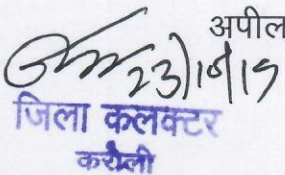 अपील
23/10/19
जिला कलक्टर
करौली